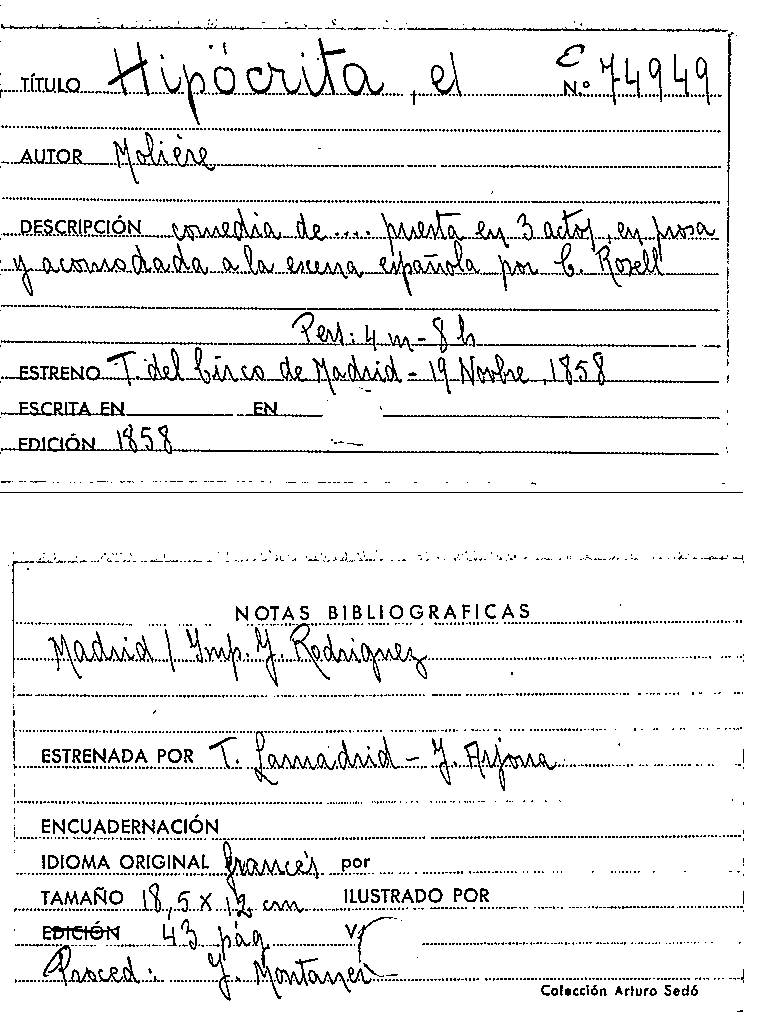 TÍTULO Hipócrita, el C Nº 74949
AUTOR Molière
DESCRIPCIÓN comedia de .... puesta en 3 actos, en prosa
y acomodada a la escena española por C. Rosell
Pers: 4 m - 8 h
ESTRENO T. del Circo de Madrid - 19 Novbre, 1858
ESCRITA EN EN
EDICIÓN 1858
NOTAS BIBLIOGRAFICAS
Madrid / Imp. J. Rodriguez
ESTRENADA POR T. Lamadrid - J. Arjona
ENCUADERNACIÓN
IDIOMA ORIGINAL francés por
TAMAÑO 18,5 x 12 cm ILUSTRADO POR
EDICIÓN 43 pág V
Proced: J. Montaner
Colección Arturo Sedó